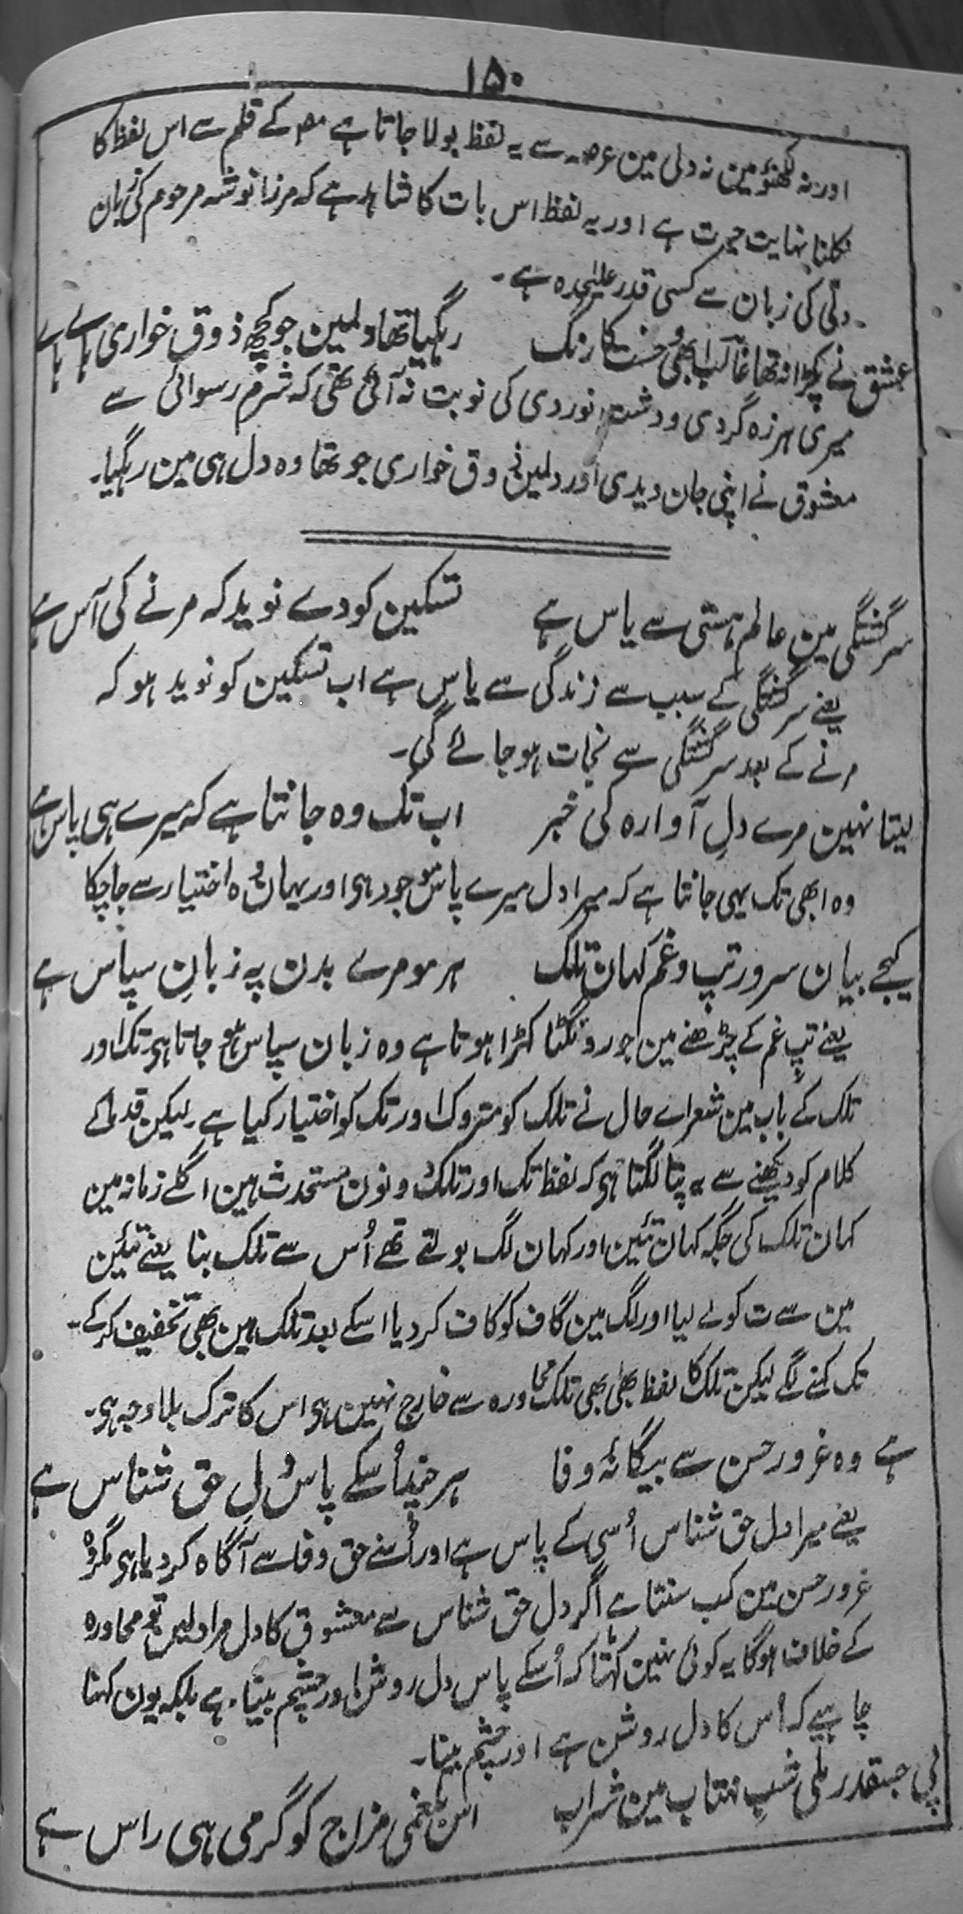 ۱۵۰
اور نہ لکھنؤ مین نہ دلی مین عرصہ سے یہ لفظ بولا جاتا ہے مصر کے قلم سے اس لفظ کا
نکلنا نہایت حیرت ہے اور یہ لفظ اس بات کا شاہد ہے کہ مرزا نوشہ مرحوم کی زبان
دلی کی زبان سے کسی قدر علیحدہ ہے۔
عشق نے پکڑا نہ تھا غالب ابھی وحشت کا رنگ رہگیا تھا دلمین جو کچھ ذوق خواری ہائے ہائے
میری ہرزہ گردی و دشت نوردی کی نوبت نہ آئی تھی کہ شرم رسوائی سے
معشوق نے اپنی جان دیدی اور دلمین ذوق خواری جو تھا وہ دل ہی مین رہگیا۔
سرگشتگی مین عالم ہستی سے یاس ہے تسکین کو دے نوید کہ مرنے کی آس ہے
یعنے سرگشتگی کے سبب سے زندگی سے یاس ہے اب تسکین کو نوید ہو کہ
مرنے کے بعد سرگشتگی سے نجات ہو جائے گی۔
لیتا نہین مرے دلِ آوارہ کی خبر اب تک وہ جانتا ہے کہ میرے ہی پاس ہے
وہ ابھی تک یہی جانتا ہے کہ میرا دل میرے پاس موجود ہی اور یہان وہ اختیار سے جا چکا
کیجے بیان سرور تپ و غم کہان تلک ہر مو مرے بدن پہ زبانِ سپاس ہے
یعنے تپ غم کے چڑھنے مین جو رونگٹا کھڑا ہوتا ہے وہ زبان سپاس ہو جاتا ہی تک اور
تلک کے باب مین شعراے حال نے تلک کو متروک اور تک کو اختیار کیا ہے لیکن قدما کے
کلام کو دیکھنے سے یہ پتا لگتا ہی کہ لفظ تک اور تلک دونون مستحدث ہین اگلے زمانہ مین
کہان تلک کی جگہ کہان تئین اور کہان لگ بولتے تھے اُس سے تلک بنا یعنے تئین
مین سے ت کو لے لیا اور لگ مین گاف کو کاف کر دیا اسکے بعد تلک مین بھی تخفیف کر کے
تک کہنے لگے لیکن تلک کا لفظ بھی ابھی تلک محاورہ سے خارج نہین ہی اس کا ترک بلاوجہ ہی۔
ہے وہ غرور حسن سے بیگانۂ وفا ہر چند اُسکے پاس دلِ حق شناس ہے
یعنے میرا دل حق شناس اُسی کے پاس ہے اور اُسنے حق وفا سے آگاہ کر دیا ہی مگر وہ
غرور حسن مین کب سنتا ہے اگر دل حق شناس سے معشوق کا دل مراد لین تو محاورہ
کے خلاف ہوگا یہ کوئی نہین کہتا کہ اُسکے پاس دل روشن اور چشم بینا ہے بلکہ یون کہنا
چاہیے کہ اُس کا دل روشن ہے اور چشم بینا۔
پی جسقدر ملی شبِ مہتاب مین شراب اس بلغمی مزاج کو گرمی ہی راس ہے